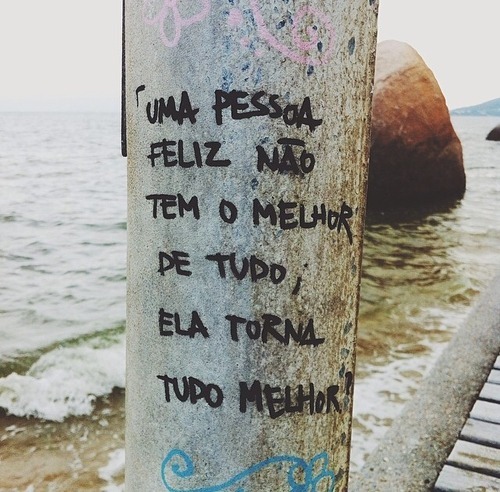 "UMA PESSOA
FELIZ NÃO
TEM O MELHOR
DE TUDO;
ELA TORNA
TUDO MELHOR"